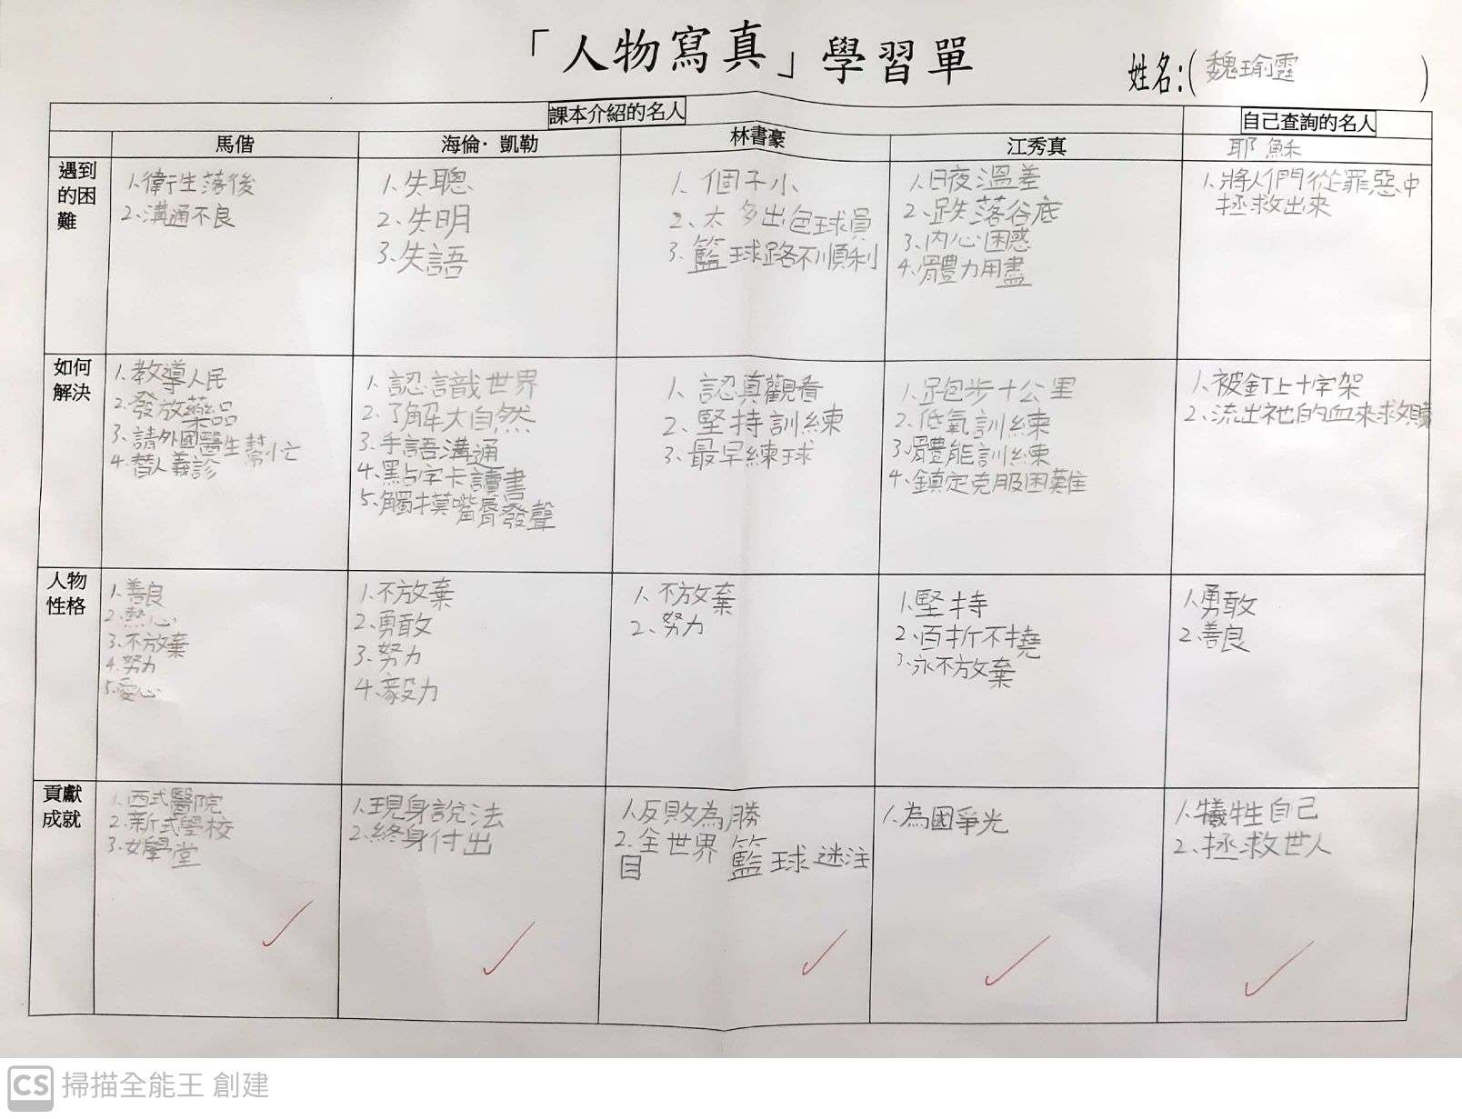 「人物寫真」學習單
姓名:(魏瑜霝)
課本介紹的名人
自己查詢的名人
馬偕
海倫·凱勒
林書豪
江秀真
耶穌
遇到
的困
難
1、衛生落後
2、溝通不良
1、失聰
2、失明
3、失語
1、個子小
2、太多出色球員
3、籃球路不順利
1、日夜溫差
2、跌落谷底
3、內心困惑
4、體力用盡
1、將人們從罪惡中
拯救出來
如何
解決
1、教導人民
2、發放藥品
3、請外國醫生幫忙
4、替人義診
1、認識世界
2、了解大自然
3、手語溝通
4、點字卡讀書
5、觸摸嘴脣發聲
1、認真觀看
2、堅持訓練
3、最早練球
1、跑步十公里
2、低氧訓練
3、體能訓練
4、鎮定克服困難
1、被釘上十字架
2、流出祂的血來救贖
人物
性格
1、善良
2、熱心
3、不放棄
4、努力
5、愛心
1、不放棄
2、勇敢
3、努力
4、毅力
1、不放棄
2、努力
1、堅持
2、百折不撓
3、永不放棄
1、勇敢
2、善良
貢獻
成就
1、西式醫院
2、新式學校
3、女學堂
1、現身說法
2、終身付出
1、反敗為勝
2、全世界籃球迷注
目
1、為國爭光
1、犧牲自己
2、拯救世人
CS 掃描全能王 創建